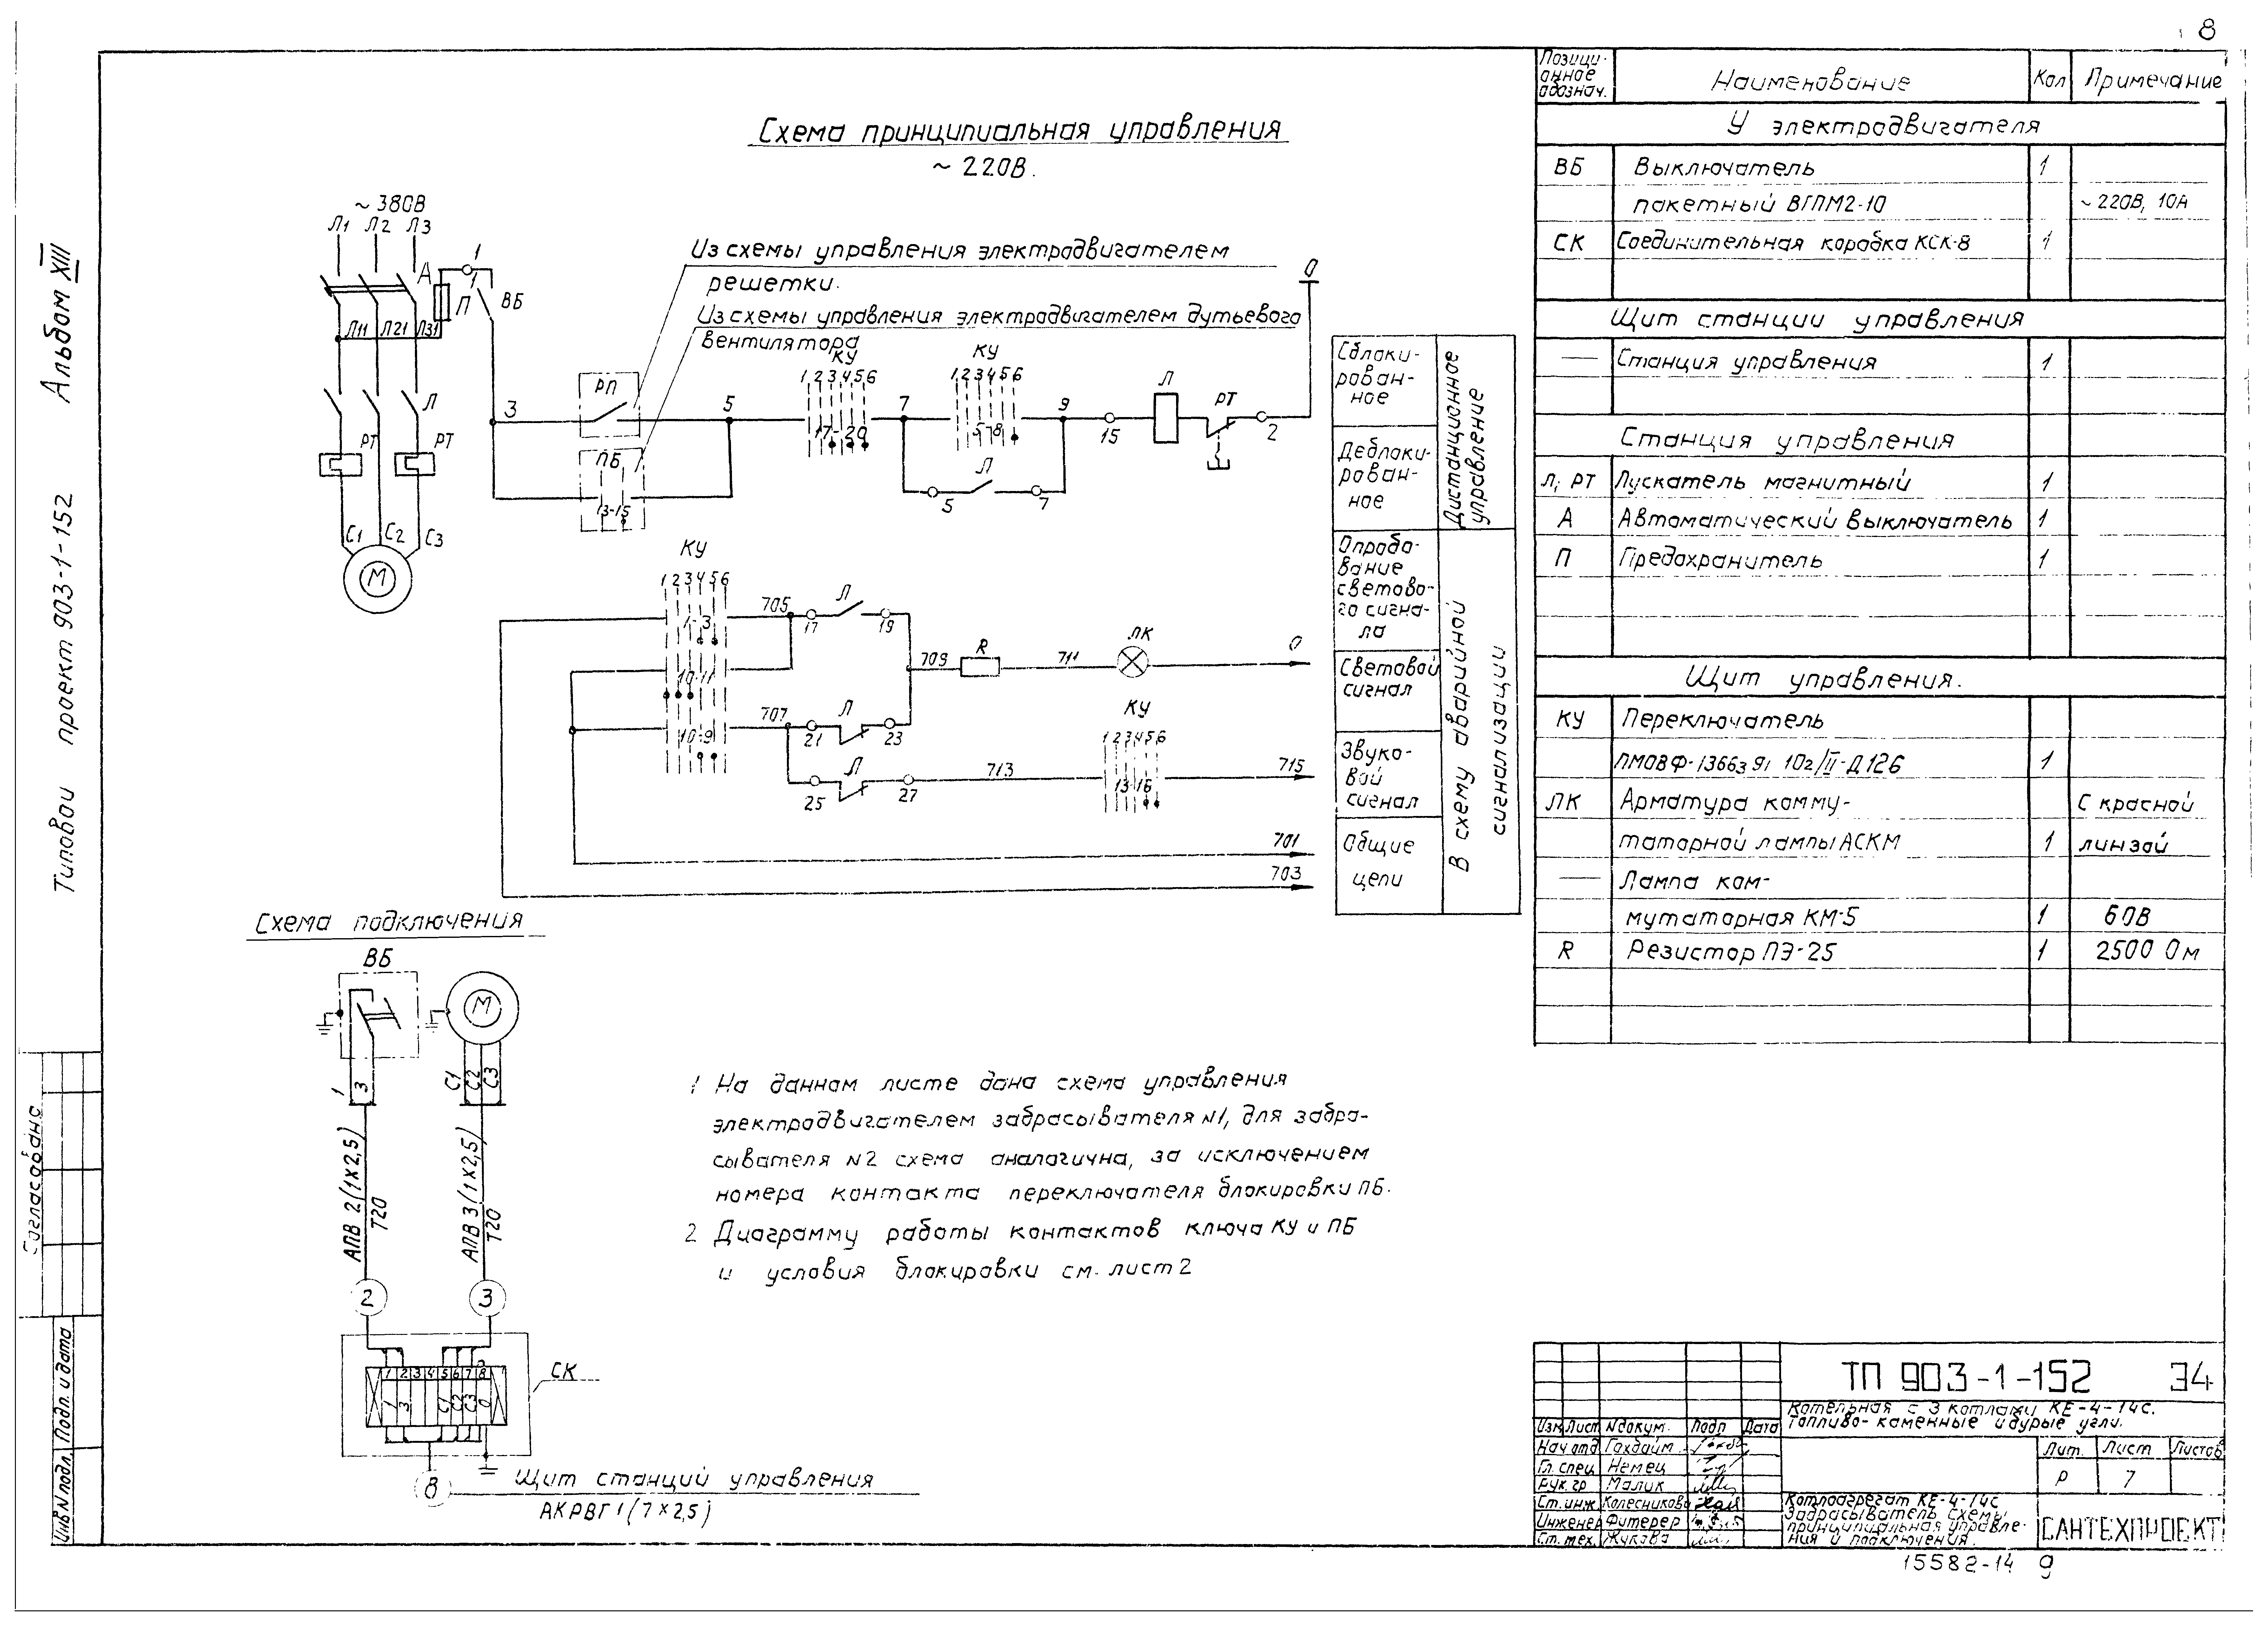 8
Альбом XIII
Типовой проект 903-1-152
Согласовано
Инв N подл.
Подп. и дата
Схема принципиальная управления
~ 220В.
~ 380В
Л1 Л2 Л3
А
1
1
П
ВБ
Л11 Л21 Л31
Л
РТ РТ
С1 С2 С3
М
Из схемы управления электродвигателем
решетки.
Из схемы управления электродвигателем дутьевого
вентилятора
КУ
1 2 3 4 5 6
17-20
КУ
1 2 3 4 5 6
5-8
3
РП
5
7
9
15
Л
РТ
2
0
ПБ
13-15
Л
5
7
КУ
1 2 3 4 5 6
1-3
10-11
10-9
705
17
Л
19
709
R
711
ЛК
0
707
21
Л
23
25
Л
27
713
КУ
1 2 3 4 5 6
13-16
715
701
703
Сблоки-
рован-
ное
Деблоки-
рован-
ное
Дистанционное
управление
Опробо-
вание
светово-
го сигна-
ла
Световой
сигнал
Звуко-
вой
сигнал
Общие
цепи
В схему аварийной
сигнализации
Схема подключения
ВБ
М
1
3
С1
С2
С3
АПВ 2(1x2,5)
Т20
АПВ 3(1x2,5)
Т20
2
3
1 2 3 4 5 6 7 8
1 3 С1 С2 С3 0
СК
8
Щит станций управления
АКРВГ 1(7x2,5)
1 На данном листе дана схема управления
электродвигателем забрасывателя N1, для забра-
сывателя N2 схема аналогична, за исключением
номера контакта переключателя блокировки ПБ.
2 Диаграмму работы контактов ключа КУ и ПБ
и условия блокировки см. лист 2
Позици-
онное
обознач.
Наименование
Кол
Примечание
У электродвигателя
ВБ Выключатель 1
пакетный ВГПМ2-10 ~220В, 10А
СК Соединительная коробка КСК-8 1
Щит станции управления
— Станция управления 1
Станция управления
Л; РТ Пускатель магнитный 1
А Автоматический выключатель 1
П Предохранитель 1
Щит управления.
КУ Переключатель
ПМОВФ-1366391 102/II-Д126 1
ЛК Арматура комму- С красной
таторной лампы АСКМ 1 линзой
— Лампа ком-
мутаторная КМ-5 1 60В
R Резистор ПЭ-25 1 2500 Ом
ТП 903-1-152 ЭЧ
Котельная с 3 котлами КЕ-4-14с.
Топливо- каменные и бурые угли.
Изм Лист N докум. Подп Дата
Нач отд Гохбойм
Гл. спец Немец
Рук. гр Малик
Ст. инж Колесникова
Инженер Фитерер
Ст. тех. Жукова
Лит. Лист Листов
Р 7
Котлоагрегат КЕ-4-14с
Забрасыватель схемы
принципиальная управле-
ния и подключения.
САНТЕХПРОЕКТ
15582-14 9